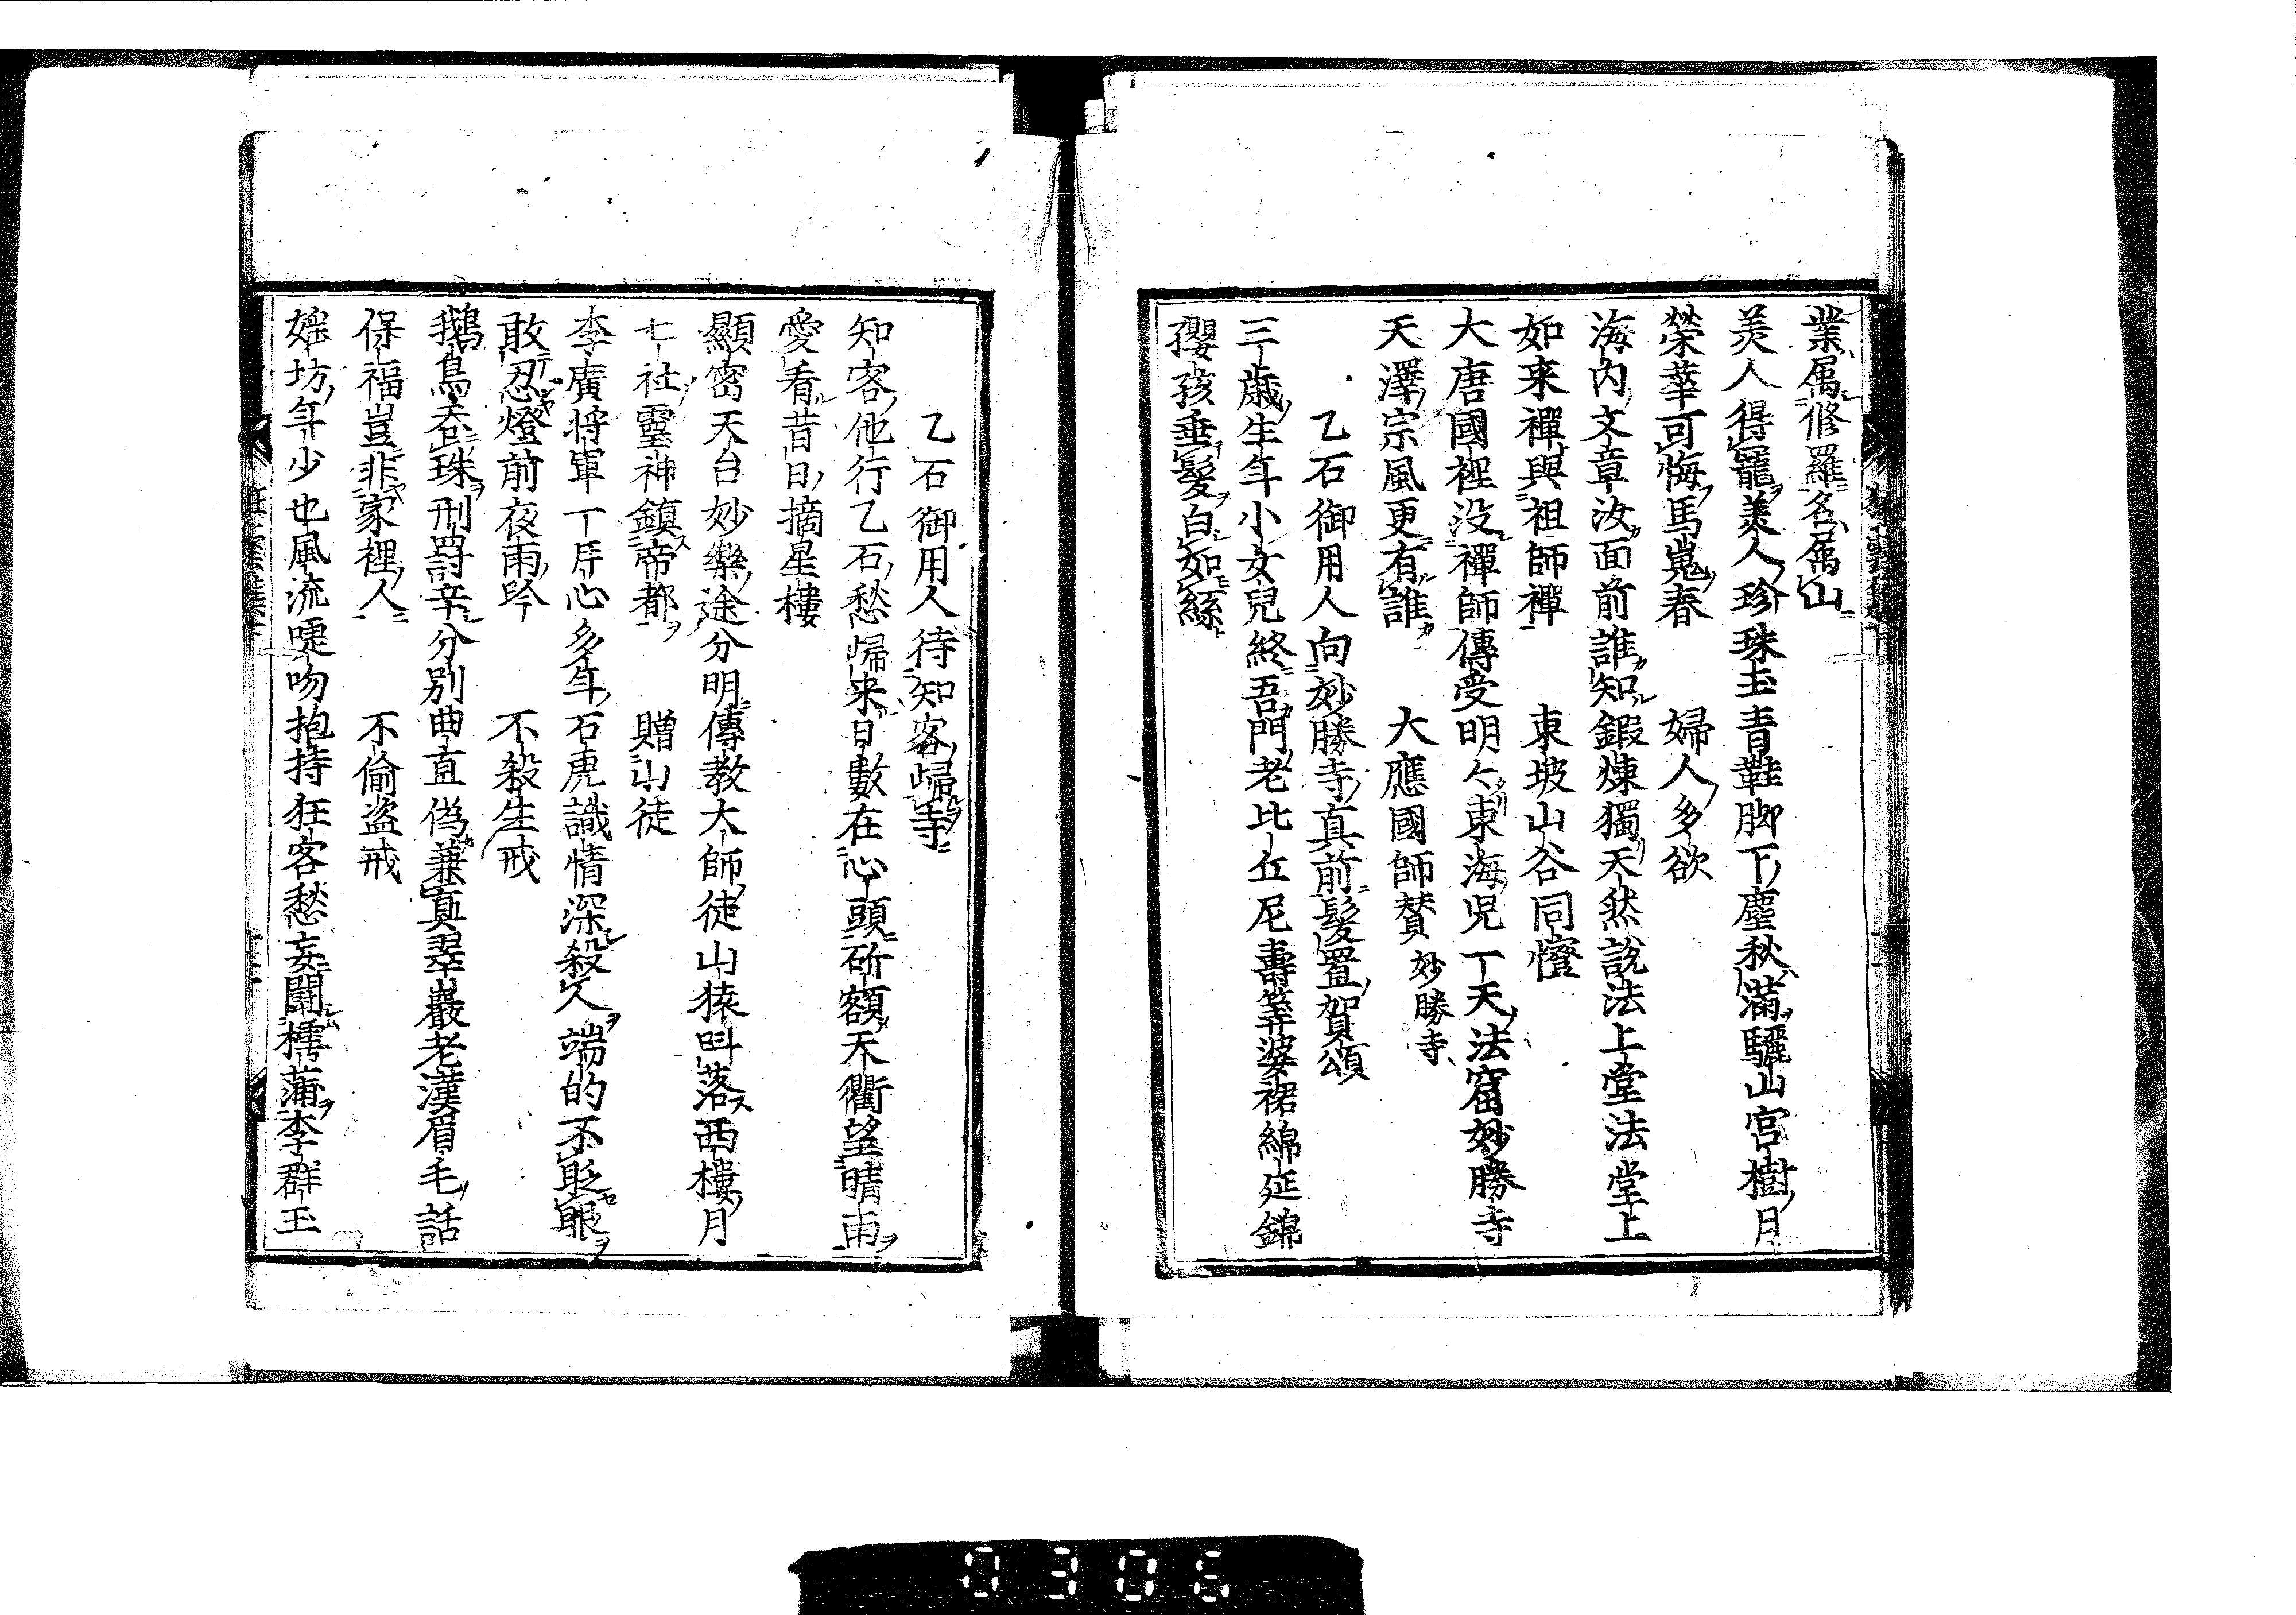 業属修羅名属山
美人得寵美人珍珠玉青鞋脚下塵秋滿驪山宮樹月
榮華可悔馬嵬春　婦人多欲
海内文章汝面前誰知鍜煉獨天然說法上堂法堂上
如来禪與祖師禪　東坡山谷同幢
大唐國裡没禪師傳受明々東海児一天法窟妙勝寺
天澤宗風更有誰　大應國師賛 妙勝寺
乙石御用人向妙勝寺真前髮置賀頌
三歳生年小女兒終吾門老比丘尼壽筭婆裙綿延錦
孾孩垂髮白如絲
乙石御用人待知客歸寺
知客他行乙石愁歸来日數在心頭斫額天衢望晴雨
愛看昔日摘星樓
顯密天台妙樂途分明傳教大師徒山猿呌落西樓月
七社靈神鎮帝都　贈山徒
李廣将軍一片心多年石虎識情深殺人端的不眨眼
敢忍燈前夜雨吟　不殺生戒
鵝鳥呑珠刑罸辛分別曲直偽兼真翠巖老漢眉毛話
保福豈非家裡人　不偷盗戒
婬坊年少也風流㖏吻抱持狂客愁妄闘樗蒲李群玉
0305